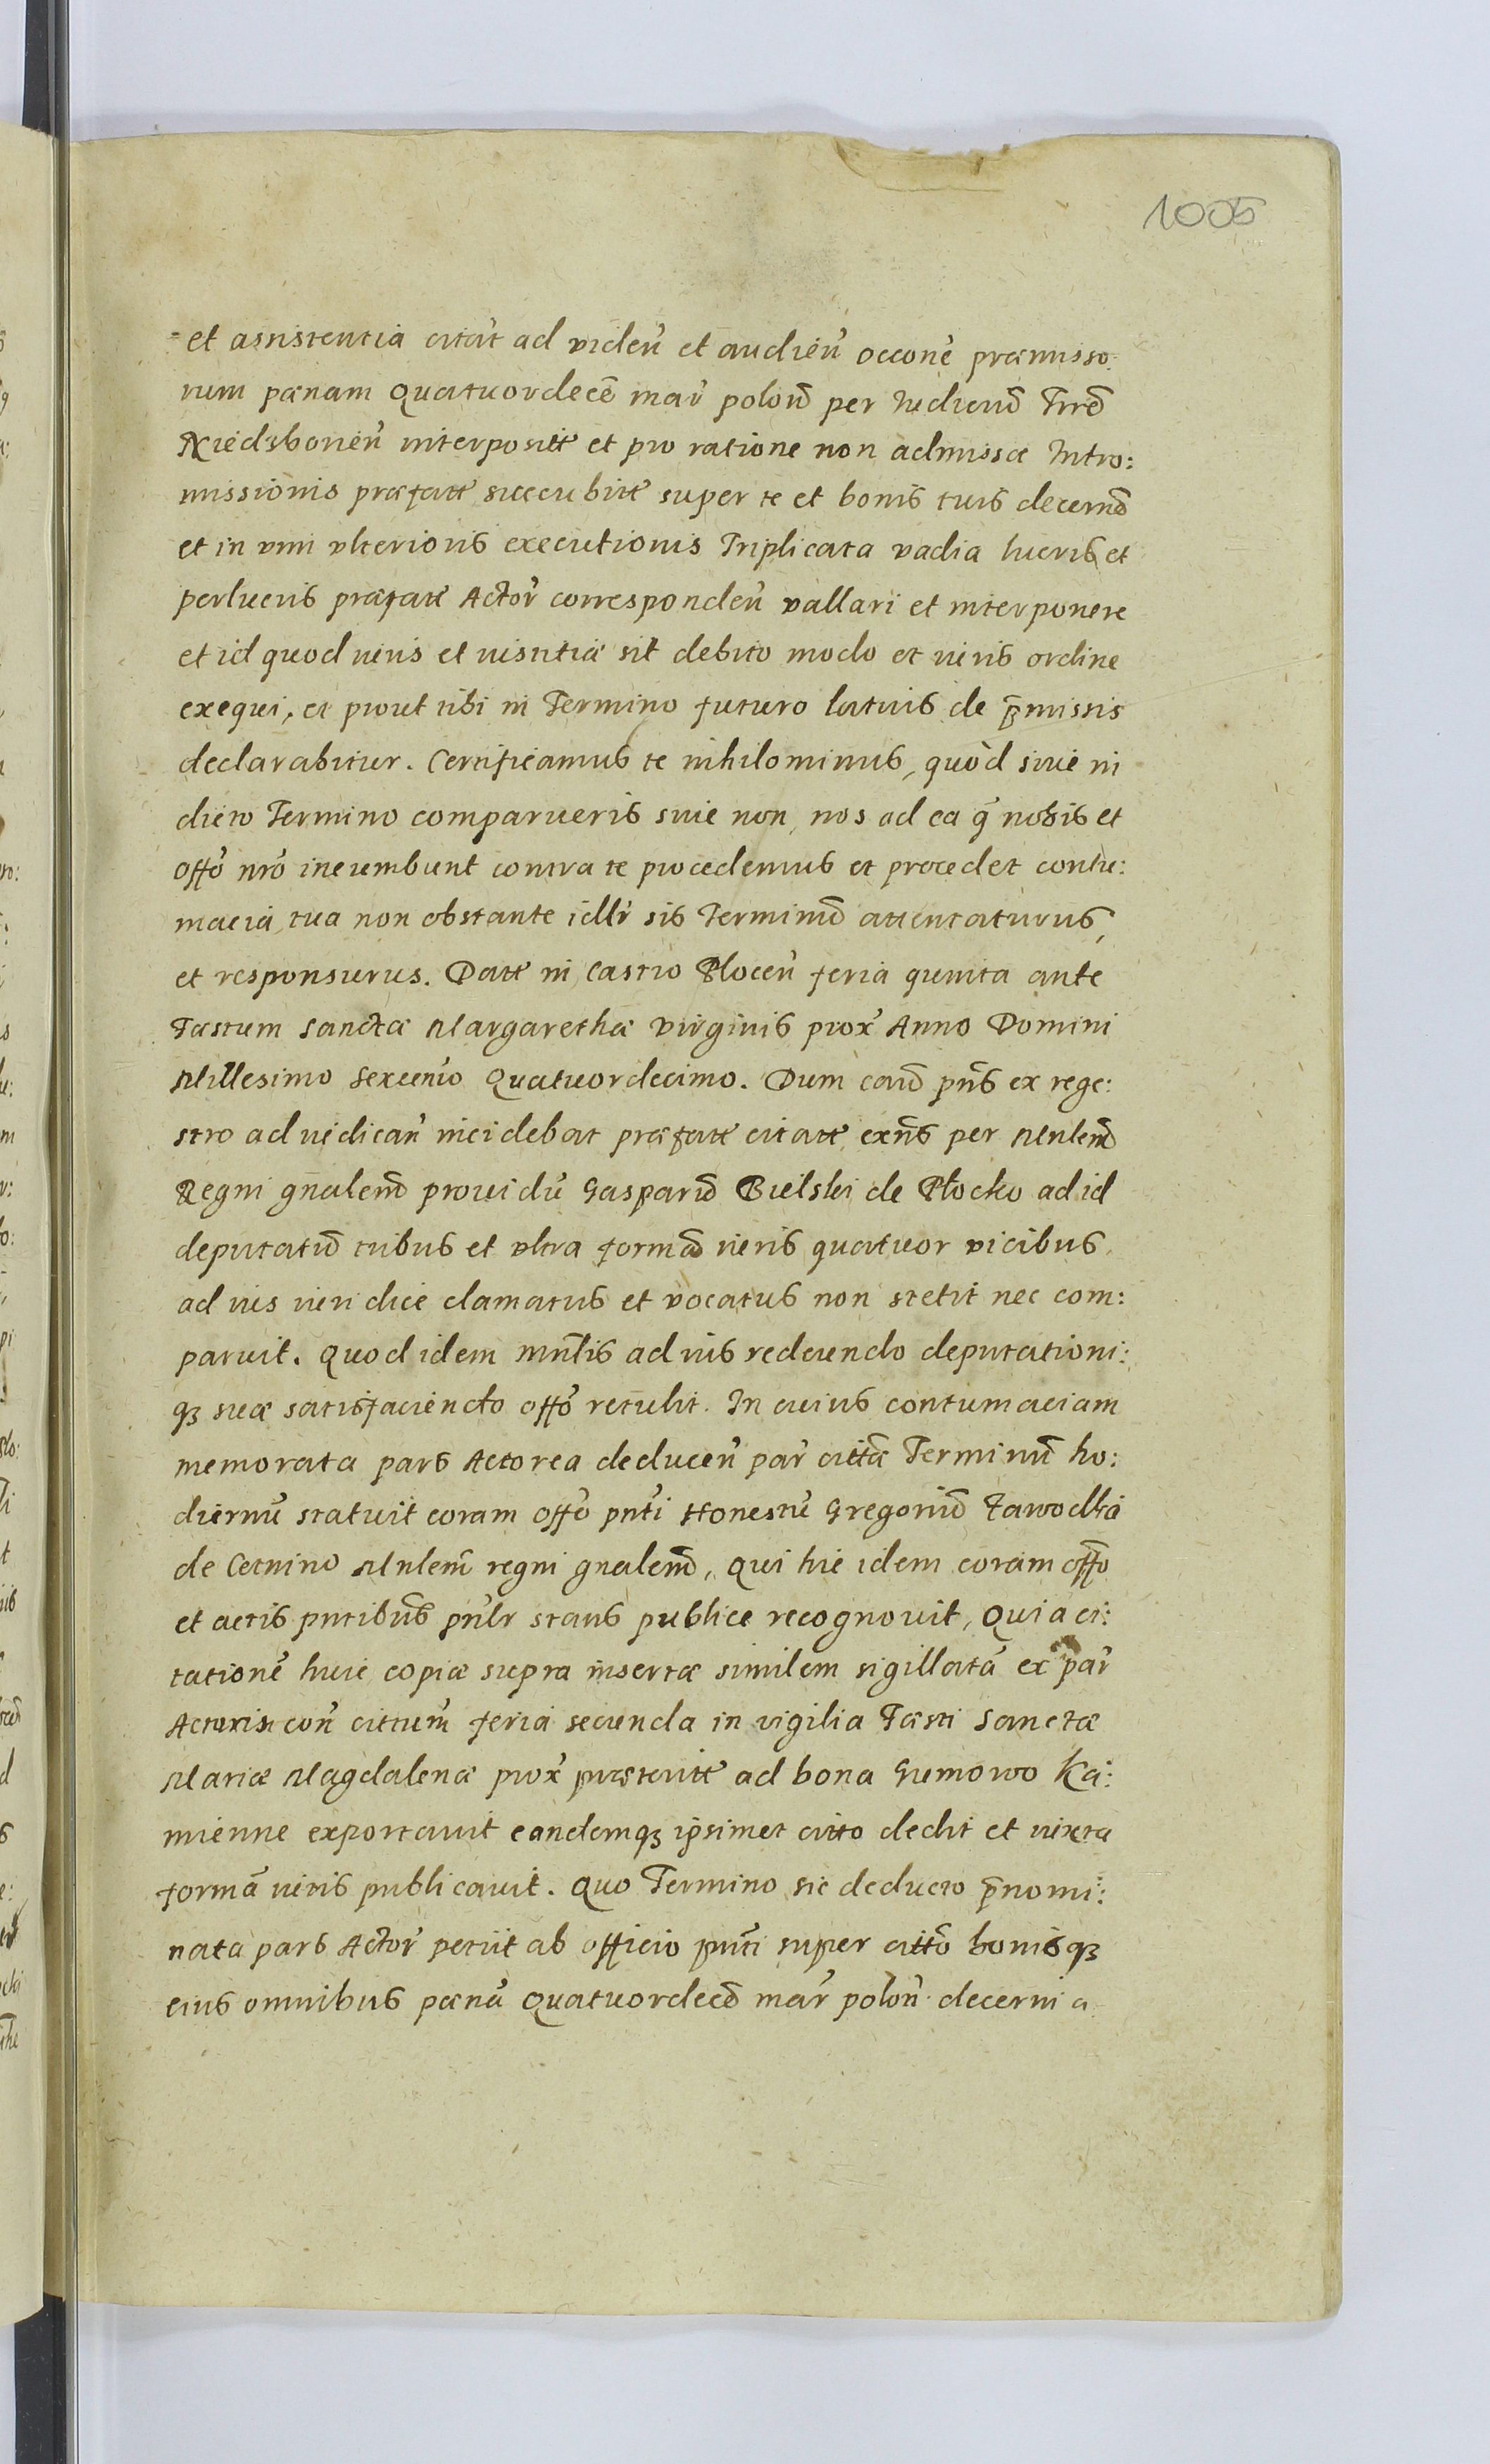 1005
et assistentia citat̃ ad videñ et audieñ occoñe præmisso:
rum pænam Quatuordecẽ mar̃ poloñ per Iudiciũ Trrẽ
Niedzboricñ interpositt̃ et pro ratione non admissæ Intro:
missionis præfatt̃ succubitt̃ super te et bonis tuis decernẽ
et in vim vlterioris executionis Triplicata vadia lucris et
perlucris præfatt̃ Actor̃ correspondeñ vallari et interponere
et id quod iuris et iustitiæ sit debito modo et iuris ordine
exequi, et prout tibi in Termino futuro latius de p̃missis
declarabitur. Certificamus te nihilominus, quòd siue in
dicto Termino comparueris siue non, nos ad ea q̃ nobis et
offõ nrõ incumbunt contra te procedemus et procedet contu:
macia, tua non obstante illr̃ sis Terminũ attentaturus,
et responsurus. Datt̃ in Castro Ploceñ feria quinta ante
Fæstum Sanctæ Margarethæ Virginis prox̃ Anno Domini
Millesimo Sexcento Quatuordecimo. Dum cauã pñs ex rege:
stro ad iudicañ incidebat præfatt̃ citatt̃ exñs per Mnlem̃
Regni gñalem̃ prouidũ Gasparũ Bielski de Płocko ad id
deputatũ tribus et vltra formã iuris quatuor vicibus
ad ius iuridice clamatus et vocatus non stetit nec com:
paruit. Quod idem mnl̃is ad ius redeundo deputationi:
qȝ suæ satisfaciendo offõ retulit. In cuius contumaciam
memorata pars Actorea deduceñ par̃ cittã Terminũ ho:
diernũ statuit coram offõ pñti Honestũ Gregoriũ Zawodka
de Cetnino Mnlem̃ regni gnalem̃, Qui hic idem coram offõ
et actis pñtibus pñlr stans publice recognouit, Quia ci:
tationẽ huic copiæ supra insertæ similem sigillatã ex par̃
Actoris coñ cittum̃ feria secunda in vigilia Fæsti Sanctæ
Mariæ Magdalenæ prox̃ præteritt̃ ad bona Gumowo Ka:
mienne exportauit eandemqȝ ipsimet citto dedit et iuxta
formã iuris publicauit. Quo Termino sic deducto p̃nomi:
nata pars Actor̃ petiit ab officio pñti super cittõ bonisqȝ
eius omnibus pænã Quatuordecẽ mar̃ poloñ decerni a